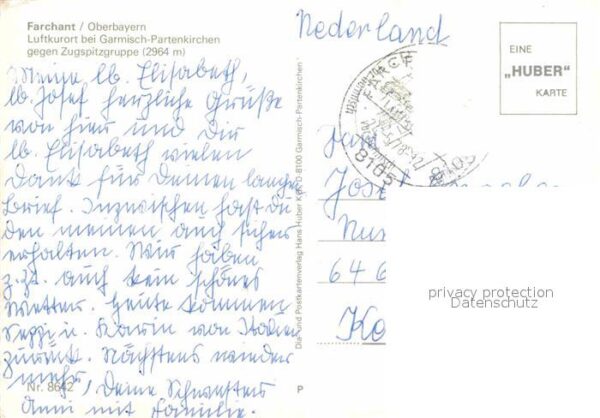 Farchant / Oberbayern
Luftkurort bei Garmisch-Partenkirchen
gegen Zugspitzgruppe (2964 m)
Meine lb. Elisabeth,
lb. Josef herzliche Grüße
von hier und Dir
lb. Elisabeth vielen
Dank für Deinen langen
Brief. Inzwischen hast du
den meinen auch sicher
erhalten. Wir haben
z.Zt. auch kein schönes
Wetter. Heute kommen
Seppi u. Karin von Italien
zurück. Nächstens wieder
mehr, Deine Schwester
Anni mit Familie.
Nr. 8642
Dia- und Postkartenverlag Hans Huber KG, D-8100 Garmisch-Partenkirchen
P
Nederland
FARCH
8105
8105
EINE
„HUBER"
KARTE
Jos
646
privacy protection
Datenschutz